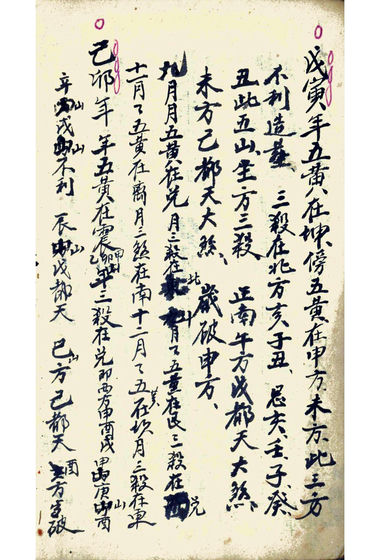 戊寅年五黃在坤傍五黃在申方未方此三方
不利造葬 三殺在北方亥子丑 忌亥壬子癸
丑此五山坐方三殺 正南午方戊都天大煞
未方己都天大煞 歲破申方
九月月五黃在兌月三殺在北 月五黃在艮三殺在
十一月五黃在離月三煞在南十二月五黃在坎月三殺在東
己卯年 年五黃在震 年三殺在兌即西方申酉戌 庚山酉山
辛山戌山不利 辰山戊都天 巳山方己都天 酉方歲破